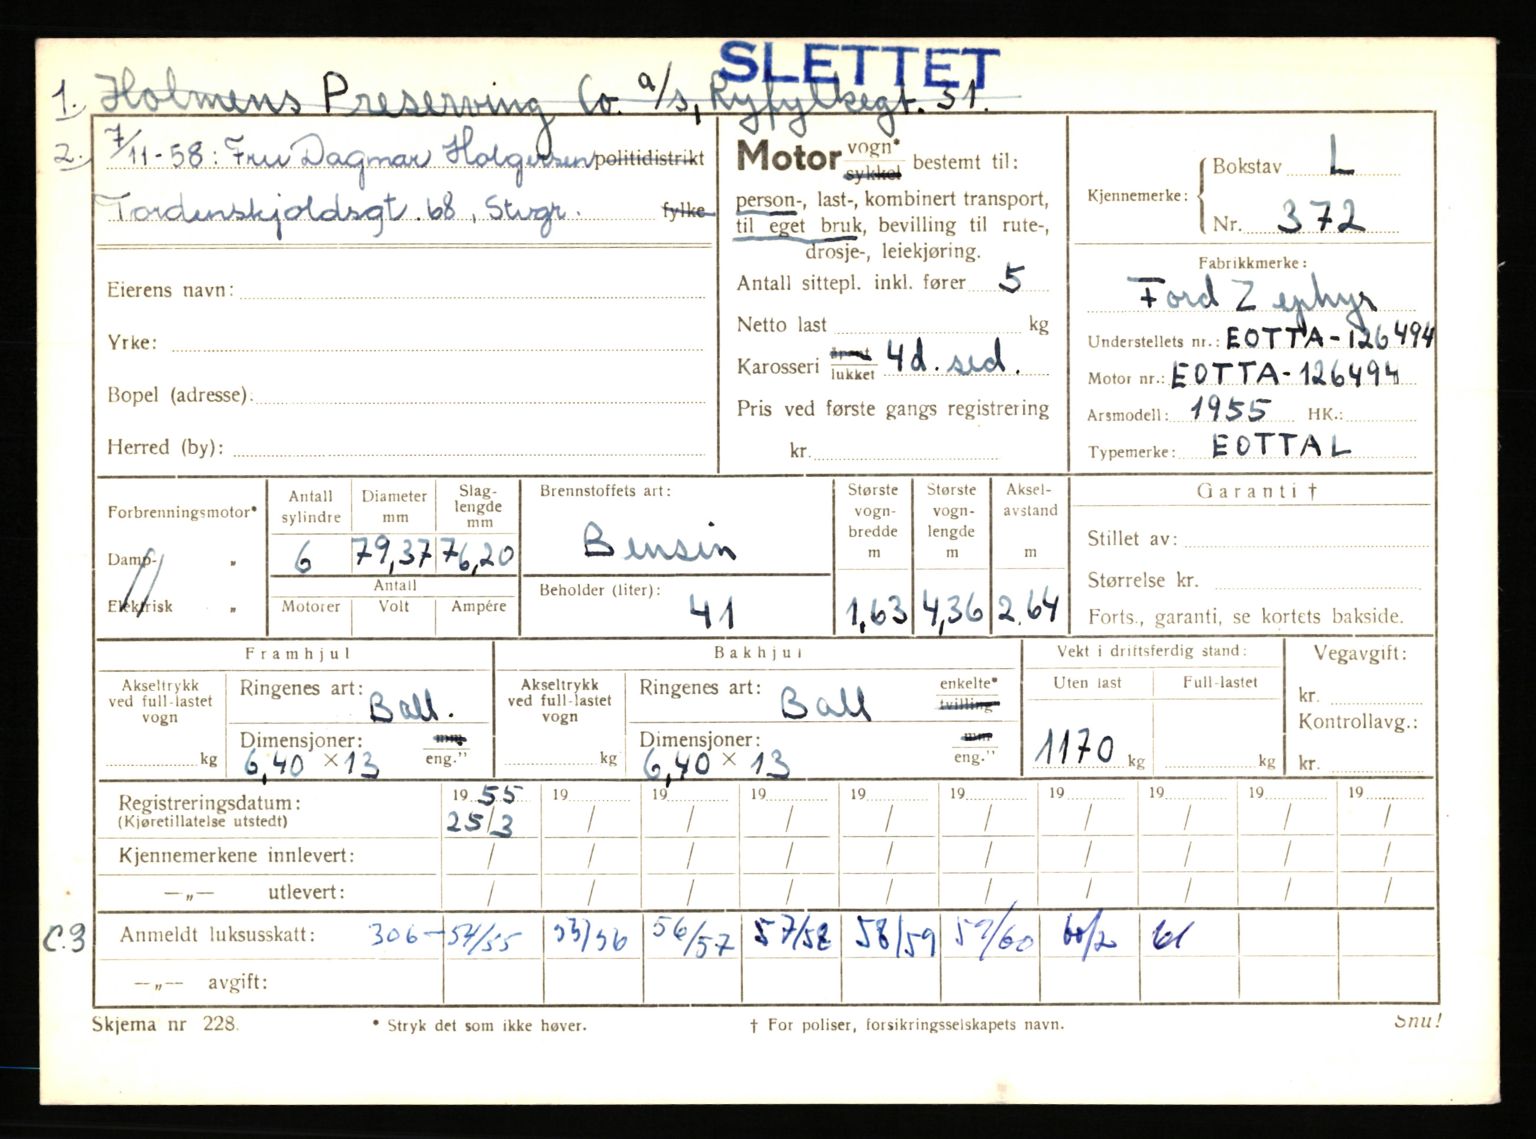 SLETTET
1. Holmens Preserving Co. a/s, Ryfylkegt. 51.
2. 7/11-58: Fru Dagmar Holgersen politidistrikt
Tordenskjoldsgt. 68, Stvgr. fylke
Eierens navn:
Yrke:
Bopel (adresse):
Herred (by):
Motor vogn* sykkel bestemt til:
person-, last-, kombinert transport,
til eget bruk, bevilling til rute-,
drosje-, leiekjøring.
Antall sittepl. inkl. fører 5
Netto last kg
Karosseri åpent lukket 4d. sed.
Pris ved første gangs registrering
kr.
Kjennemerke: Bokstav L
Nr. 372
Fabrikkmerke:
Ford Zephyr
Understellets nr.: EOTTA-126494
Motor nr.: EOTTA-126494
Årsmodell: 1955 HK.:
Typemerke: EOTTAL
Forbrenningsmotor*
Damp- „
Elektrisk „
Antall sylindre 6
Diameter mm 79,37
Slag-lengde mm 76,20
Antall
Motorer Volt Ampére
Brennstoffets art:
Bensin
Beholder (liter):
41
Største vogn-bredde m 1,63
Største vogn-lengde m 4,36
Aksel-avstand m 2.64
Garanti †
Stillet av:
Størrelse kr.
Forts., garanti, se kortets bakside.
Framhjul
Akseltrykk ved full-lastet vogn kg
Ringenes art: Ball.
Dimensjoner: mm eng."
6,40 × 13
Bakhjul
Akseltrykk ved full-lastet vogn kg
Ringenes art: Ball enkelte* tvilling
Dimensjoner: mm eng."
6,40 × 13
Vekt i driftsferdig stand:
Uten last Full-lastet
1170 kg kg
Vegavgift:
kr.
Kontrollavg.:
kr.
Registreringsdatum: 19 55 19 19 19 19 19 19 19 19 19
(Kjøretillatelse utstedt) 25/3 / / / / / / / / /
Kjennemerkene innlevert: / / / / / / / / / /
—„— utlevert: / / / / / / / / / /
C.3 Anmeldt luksusskatt: 306 - 54/55 55/56 56/57 57/58 58/59 59/60 60/2 61
—„— avgift:
Skjema nr 228.
* Stryk det som ikke høver.
† For poliser, forsikringsselskapets navn.
Snu!